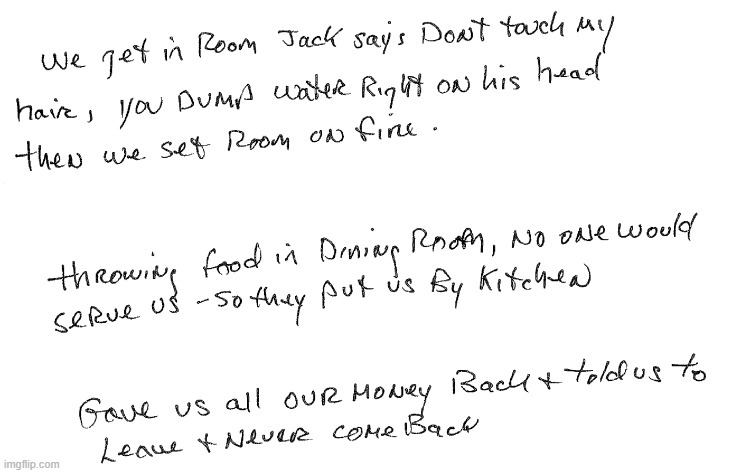 We get in Room Jack say's Dont touch my
hair, you Dump water Right on his head
then we set Room on fire.
throwing food in Dining Room, no one would
serve us - so they put us By Kitchen
Gave us all our money Back & told us to
Leave & Never come Back
imgflip.com